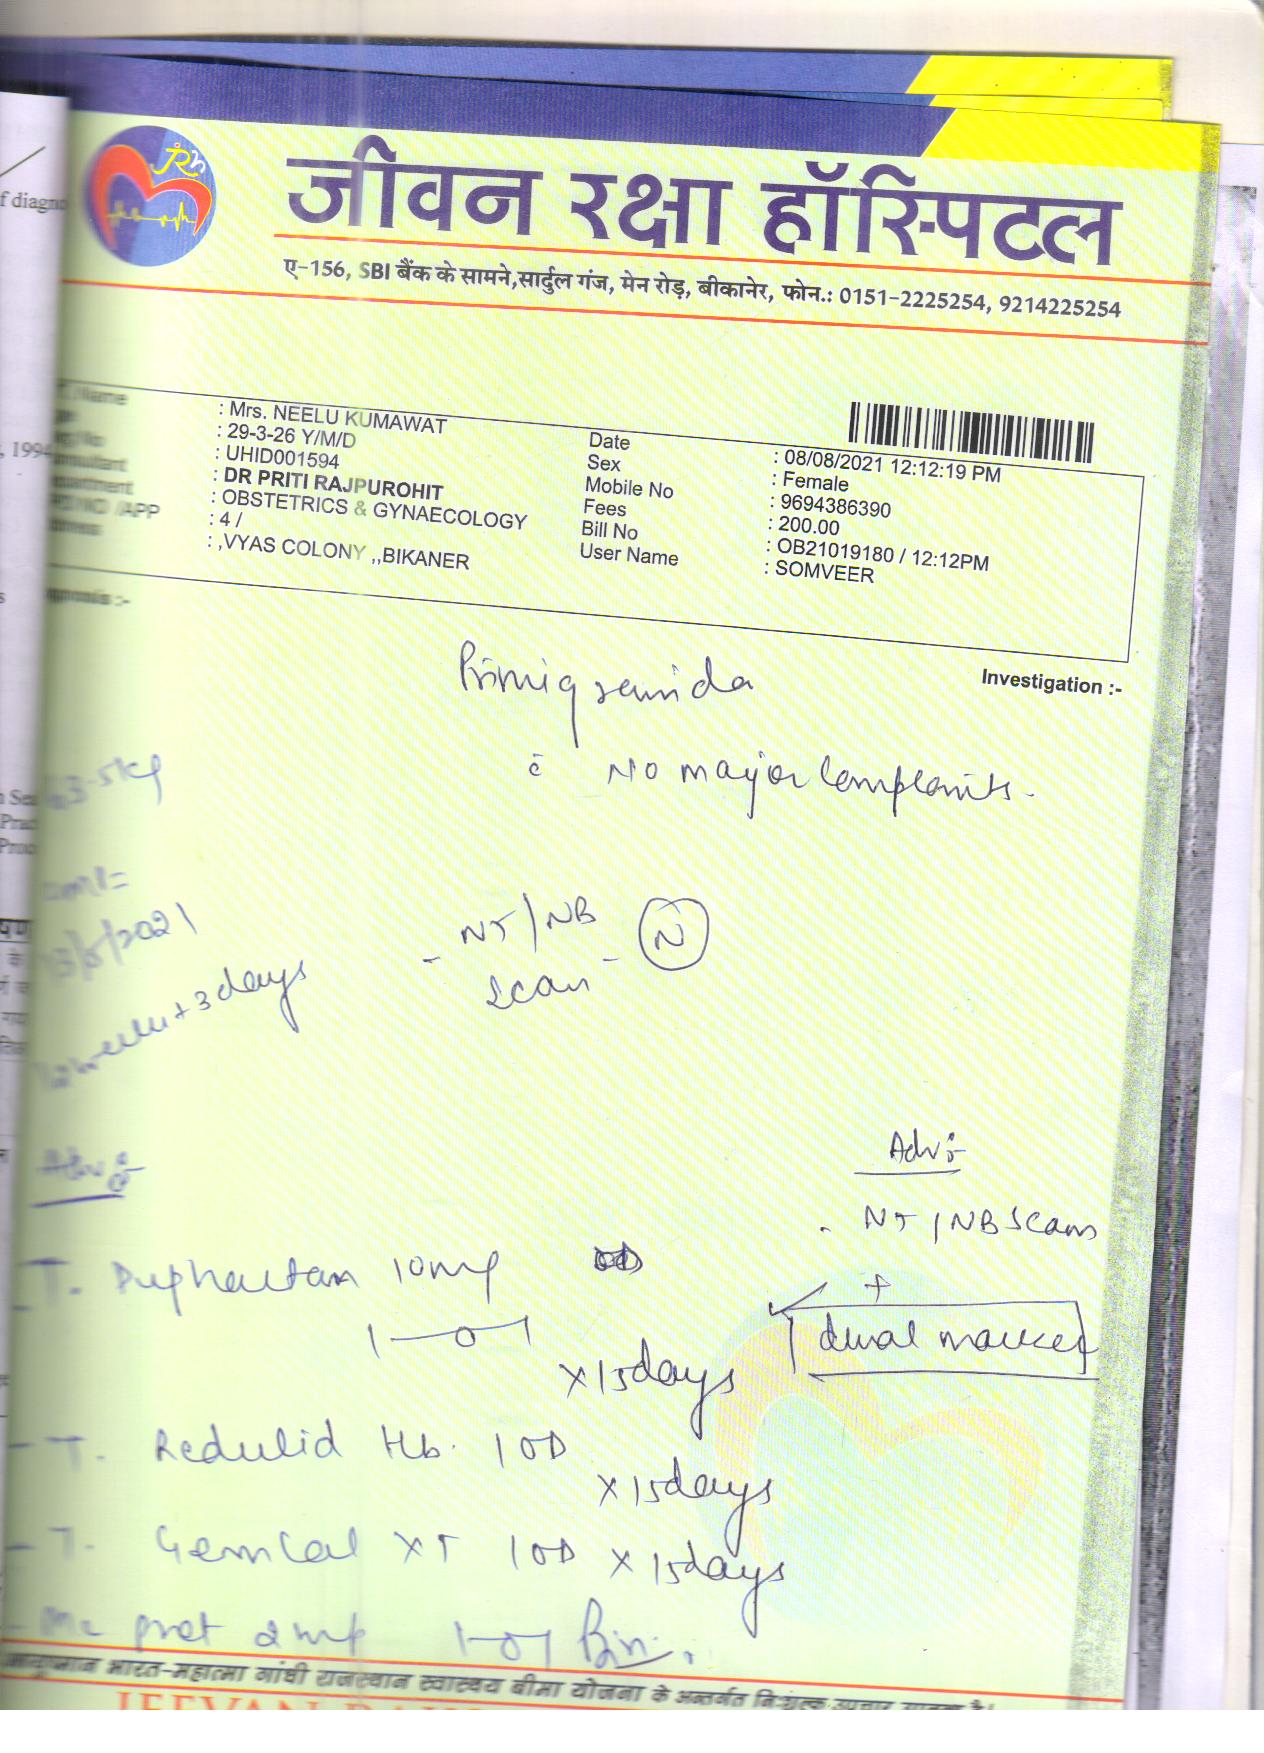 JRh
जीवन रक्षा हॉस्पिटल
ए-156, SBI बैंक के सामने,सार्दुल गंज, मेन रोड़, बीकानेर, फोन.: 0151-2225254, 9214225254
f diagno
, 1994
Name : Mrs. NEELU KUMAWAT
: 29-3-26 Y/M/D
: UHID001594
: DR PRITI RAJPUROHIT
: OBSTETRICS & GYNAECOLOGY
/APP : 4 /
: ,VYAS COLONY ,,BIKANER
Date : 08/08/2021 12:12:19 PM
Sex : Female
Mobile No : 9694386390
Fees : 200.00
Bill No : OB21019180 / 12:12PM
User Name : SOMVEER
Investigation :-
Primigravida
c̄ No major complaints.
/2021
+ 3 days
- NT/NB scan - N
Adv:-
Adv:-
. NT/NB Scan
+
dual marker
- T. Duphaston 10mg OD
1-0-1
x 15 days
- T. Redulid Hb. 1 OD
x 15 days
- T. Gemcal XT 1 OD x 15 days
1-0-1
आयुष्मान भारत-महात्मा गांधी राजस्थान स्वास्थ्य बीमा योजना के अन्तर्गत निःशुल्क उपचार उपलब्ध है।